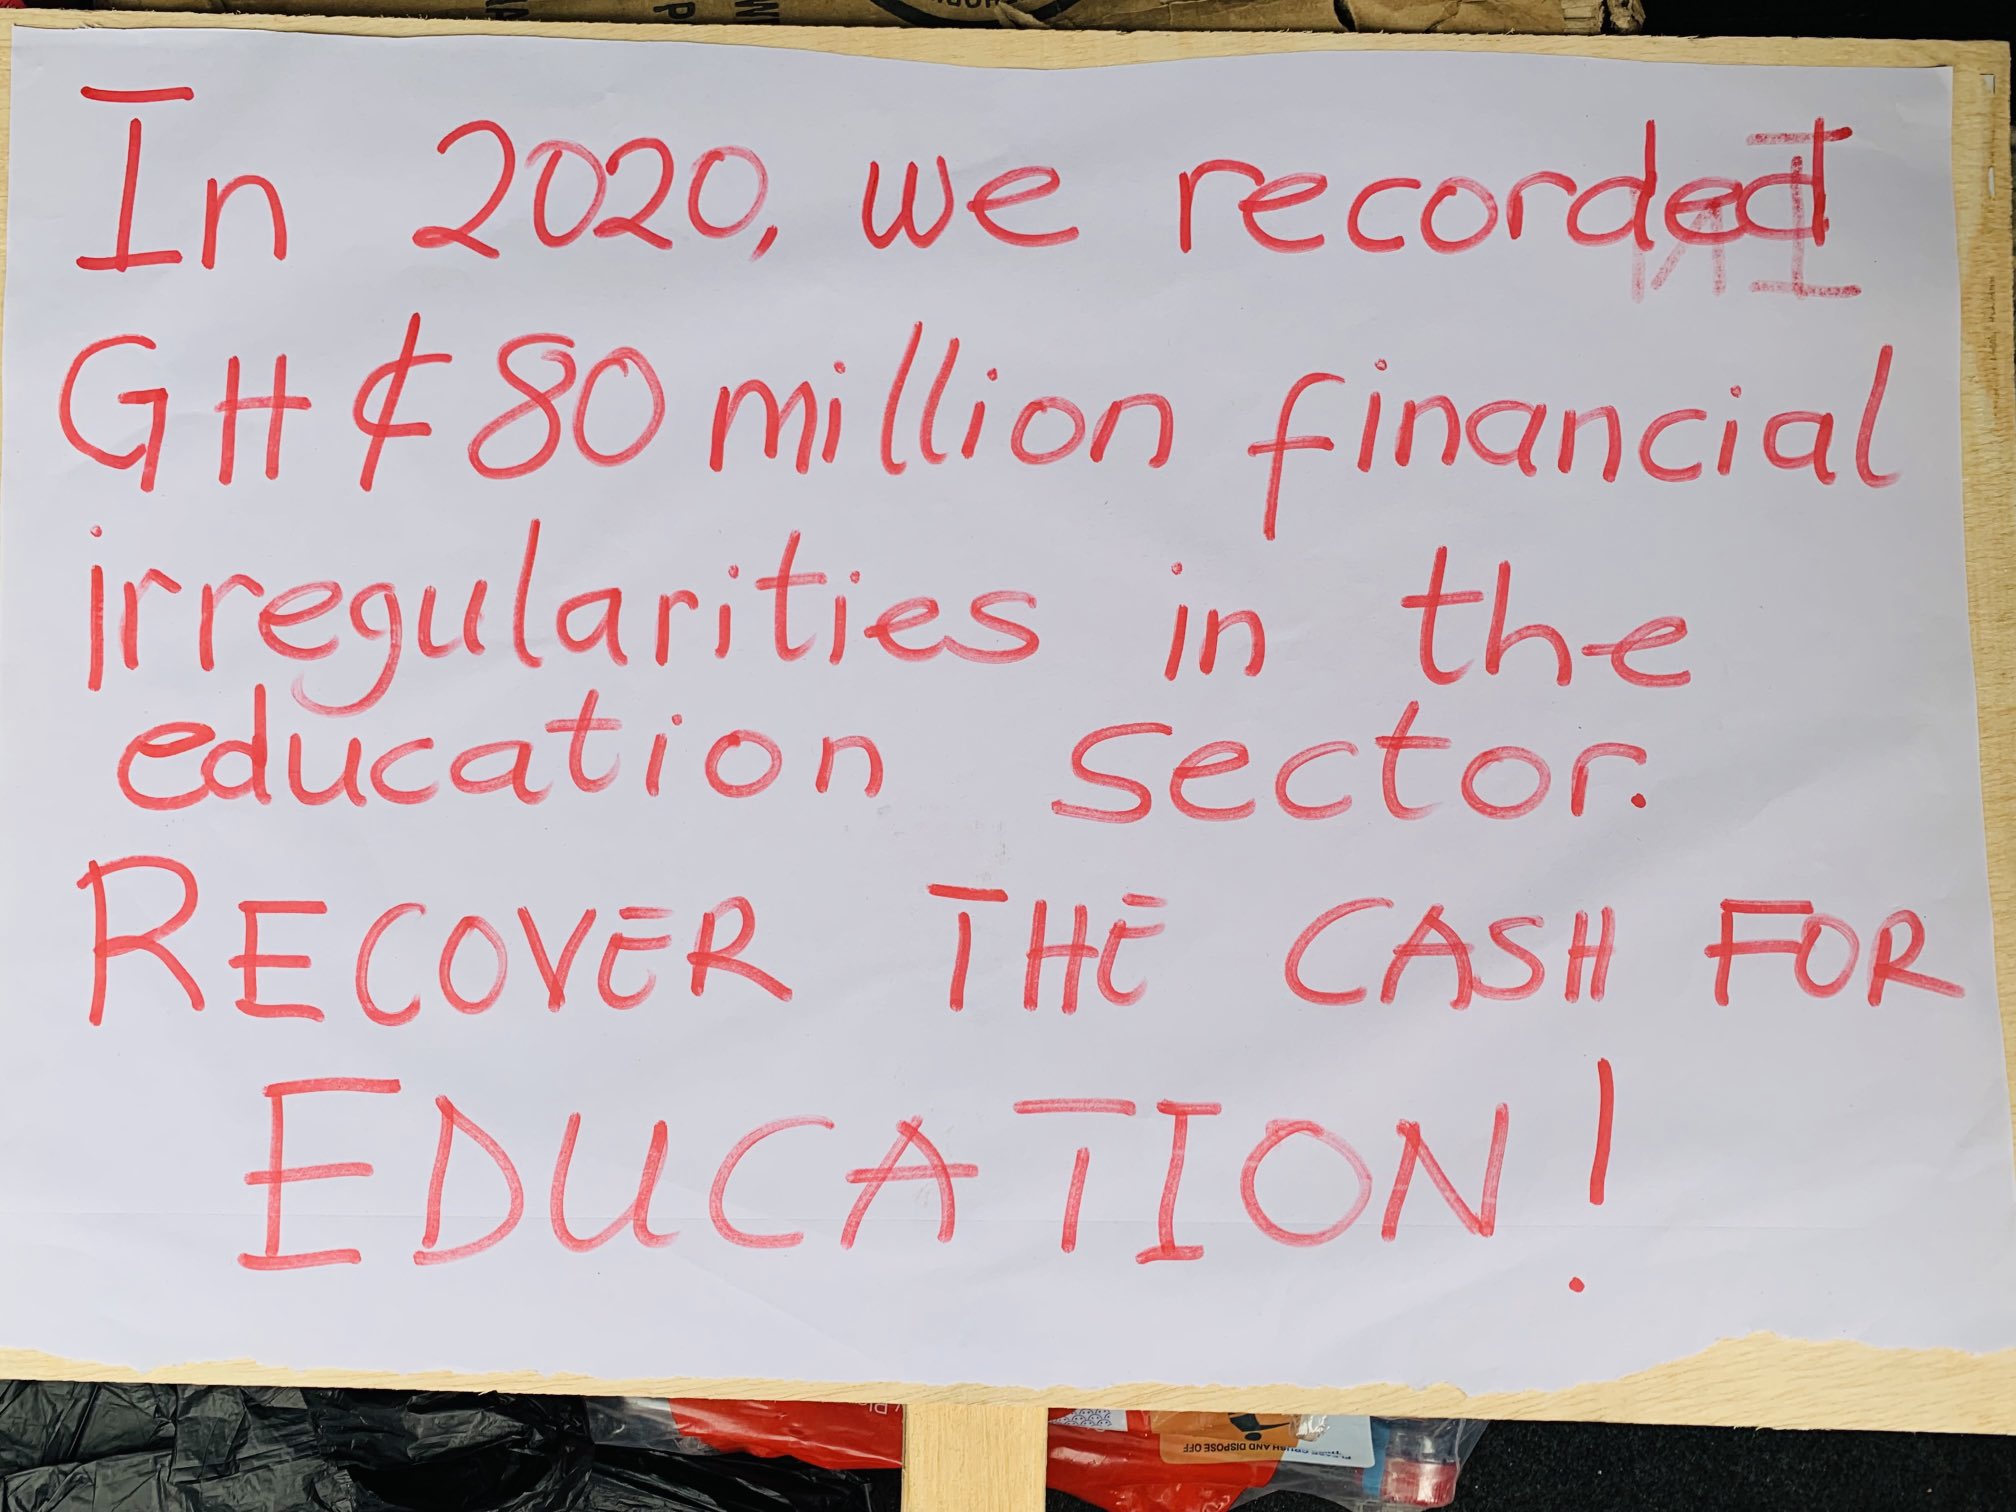 In 2020, we recorded
GH¢80 million financial
irregularities in the
education sector.
RECOVER THE CASH FOR
EDUCATION!
AND DISPOSE OFF